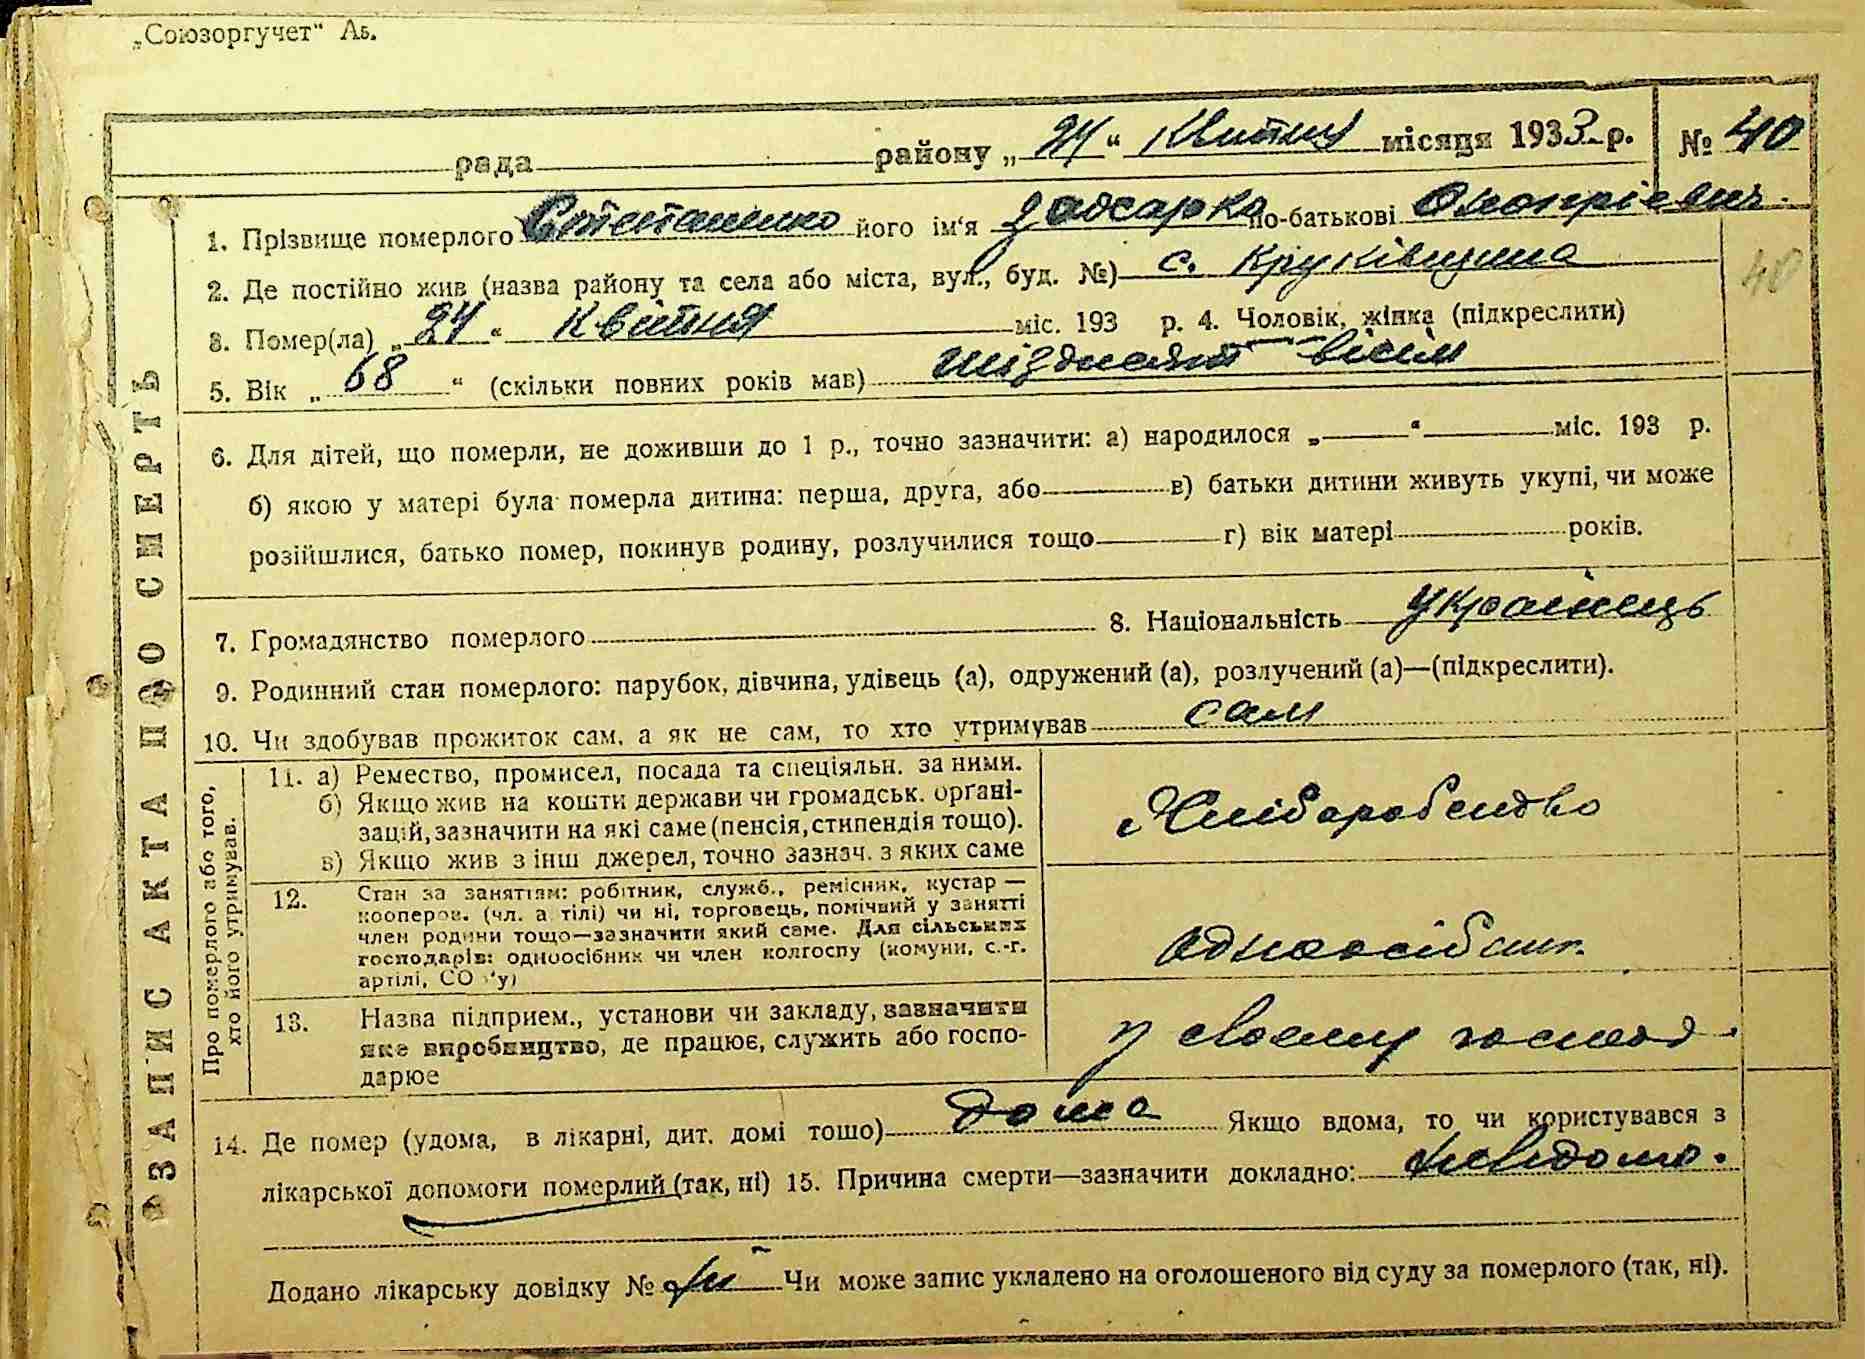 „Союзоргучет“ Аб.
рада района „24“ Квітня місяця 1933 р. № 40
1. Прізвище померлого Степаненко його ім‘я Захарко по-батькові
2. Де постійно жив (назва району та села або міста, вул., буд. №) с. Круківщина
40
3. Помер(ла) „24“ Квітня міс. 193 р. 4. Чоловік, жінка (підкреслити)
5. Вік „68“ (скільки повних років мав) шіздисят вісім
6. Для дітей, що померли, не доживши до 1 р., точно зазначити: а) народилося „ “ міс. 193 р.
б) якою у матері була померла дитина: перша, друга, або в) батьки дитини живуть укупі, чи може
розійшлися, батько помер, покинув родину, розлучилися тощо г) вік матері років.
7. Громадянство померлого 8. Національність українець
9. Родинний стан померлого: парубок, дівчина, удівець (а), одружений (а), розлучений (а)—(підкреслити).
10. Чи здобував прожиток сам, а як не сам, то хто утримував сам
ЗАПИС АКТА ПРО СМЕРТЬ
Про померлого або того,
хто його утримував.
11. а) Ремество, промисел, посада та спеціяльн. за ними.
б) Якщо жив на кошти держави чи громадськ. органі-
зацій, зазначити на які саме (пенсія, стипендія тощо).
в) Якщо жив з інш джерел, точно зазнач. з яких саме
Хліборобство
12. Стан за заняттям: робітник, служб., ремісник, кустар —
кооперов. (чл. а тілі) чи ні, торговець, помічний у занятті
член родини тощо—зазначити який саме. Для сільських
господарів: одноосібник чи член колгоспу (комуни, с.-г.
артілі, СО 'у)
одноосібник.
13. Назва підприєм., установи чи закладу, зазначити
яке виробництво, де працює, служить або госпо-
дарює
у своєму господ.
14. Де помер (удома, в лікарні, дит. домі тощо) дома Якщо вдома, то чи користувався з
лікарської допомоги померлий (так, ні) 15. Причина смерти—зазначити докладно: невідомо.
Додано лікарську довідку № Чи може запис укладено на оголошеного від суду за померлого (так, ні).